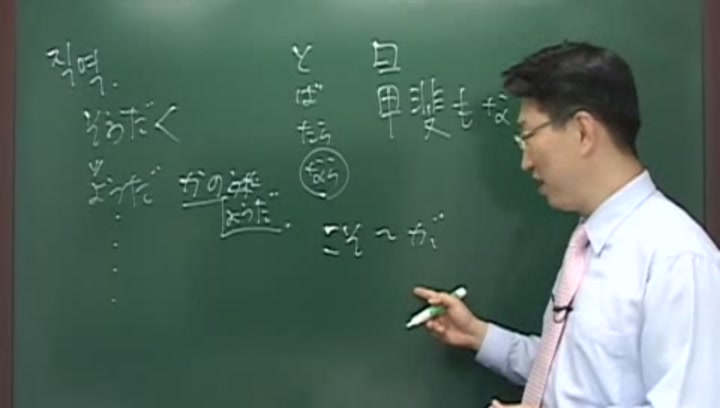 직역.
そうだ
ようだ かの ようだ
ようだ.
と
ば
たら
なら
甲斐もな
こそ〜が